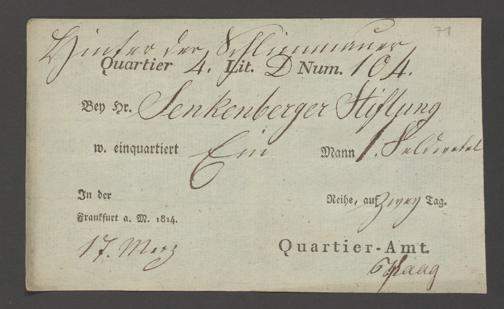 71
Hinter der Schlimmauer
Quartier 4. Lit. D Num. 104.
Bey Hr. Senkenberger Stiftung
w. einquartiert Ein Mann 1. Feldwebel
In der Reihe, auf zwey Tag.
Frankfurt a. M. 1814.
17. Merz Quartier-Amt.
Haag